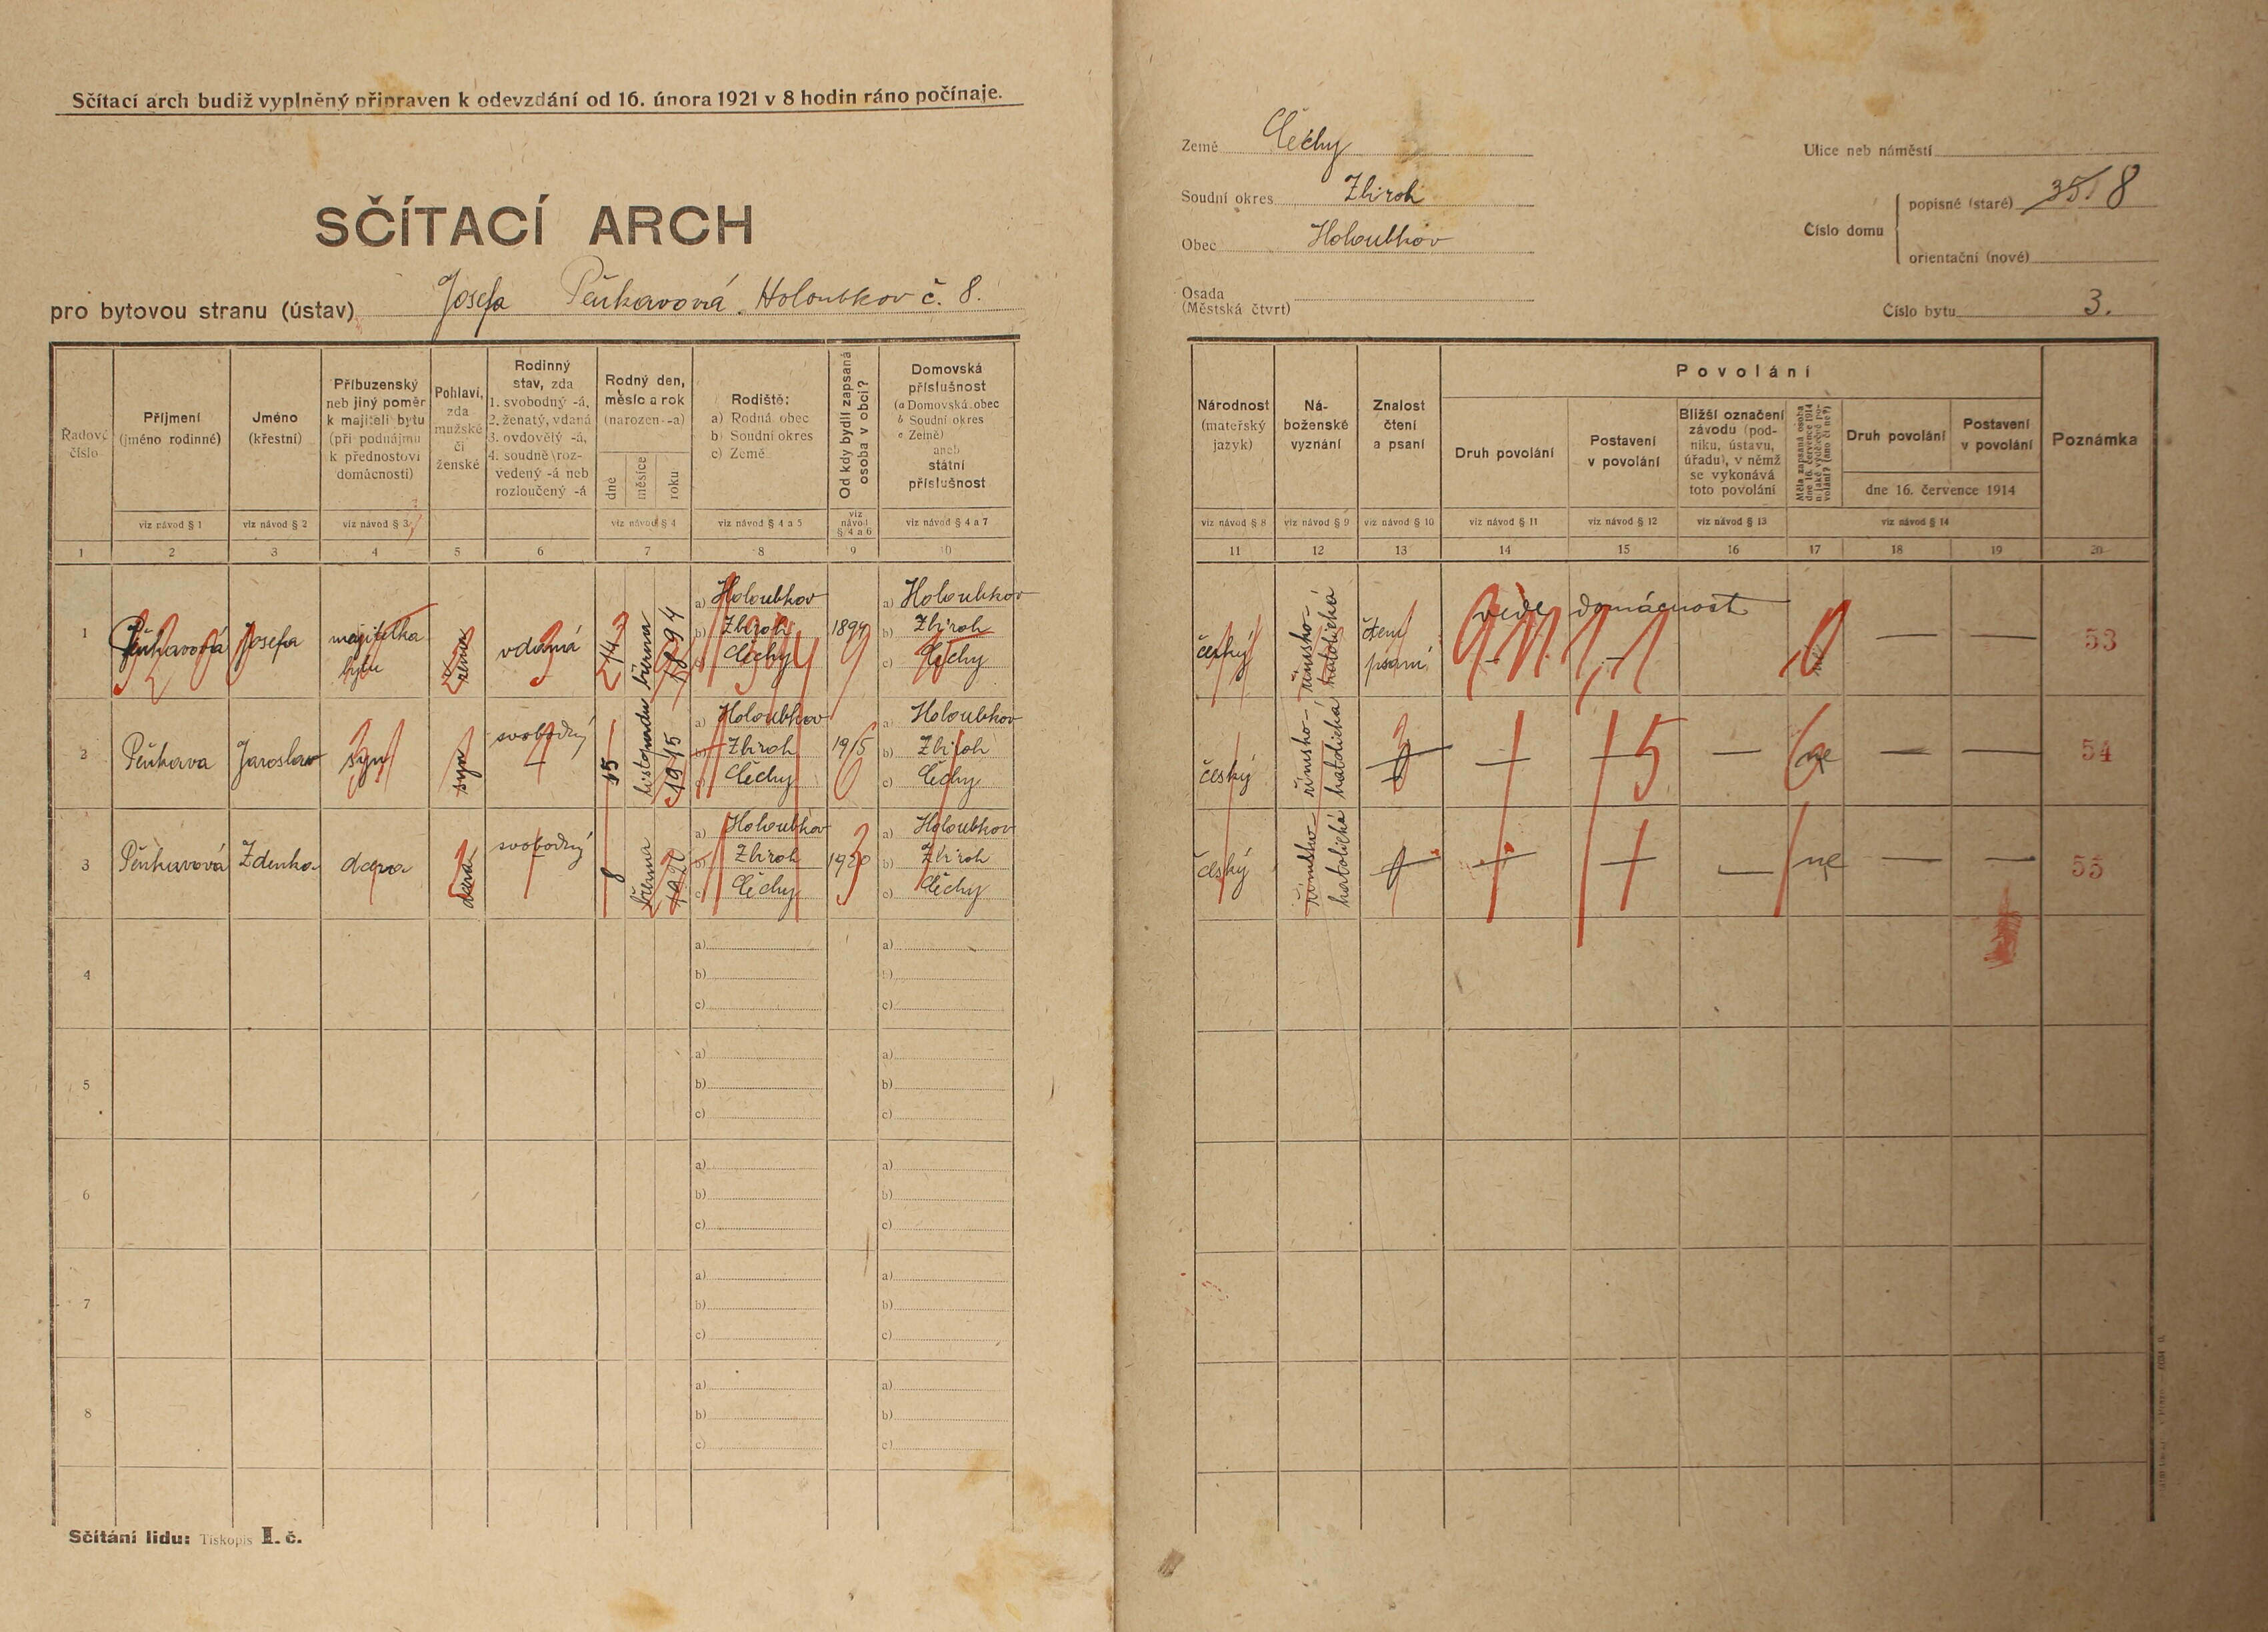 Sčítací arch budiž vyplněný připraven k odevzdání od 16. února 1921 v 8 hodin ráno počínaje.
SČÍTACÍ ARCH
pro bytovou stranu (ústav) Josefa Peňkavová. Holoubkov č. 8.
Země Čechy
Soudní okres Zbiroh
Obec Holoubkov
Osada
(Městská čtvrt)
Ulice neb náměstí
Číslo domu
popisné (staré) 35/ 8
orientační (nové)
Číslo bytu 3.
Řadové číslo
Příjmení (jméno rodinné)
Jméno (křestní)
Příbuzenský neb jiný poměr k majiteli bytu (při podnájmu k přednostovi domácnosti)
Pohlaví, zda mužské či ženské
Rodinný stav, zda 1. svobodný -á, 2. ženatý, vdaná 3. ovdovělý -á, 4. soudně rozvedený -á neb rozloučený -á
Rodný den, měsíc a rok (narozen -a)
dne měsíce roku
Rodiště: a) Rodná obec b) Soudní okres c) Země
Od kdy bydlí zapsaná osoba v obci?
Domovská příslušnost (a Domovská obec b Soudní okres c Země) aneb státní příslušnost
viz návod § 1 viz návod § 2 viz návod § 3 viz návod § 4 viz návod § 4 a 5 viz návod § 4 a 6 viz návod § 4 a 7
1 2 3 4 5 6 7 8 9 10
Národnost (mateřský jazyk)
Náboženské vyznání
Znalost čtení a psaní
Povolání
Druh povolání
Postavení v povolání
Bližší označení závodu (podniku, ústavu, úřadu), v němž se vykonává toto povolání
Měla zapsaná osoba dne 16. července 1914 nějaké výdělečné povolání? (ano či ne?)
Druh povolání
Postavení v povolání
dne 16. července 1914
Poznámka
viz návod § 8 viz návod § 9 viz návod § 10 viz návod § 11 viz návod § 12 viz návod § 13 viz návod § 14
11 12 13 14 15 16 17 18 19 20
1 Peňkavová Josefa majitelka bytu žena vdaná 14 března 1894 a) Holoubkov b) Zbiroh c) Čechy 1894 a) Holoubkov b) Zbiroh c) Čechy
český římsko-katolická čtení psaní vede domácnost — — 53
2 Peňkava Jaroslav syn syn svobodný 15 listopadu 1915 a) Holoubkov b) Zbiroh c) Čechy 1915 a) Holoubkov b) Zbiroh c) Čechy
český římsko-katolická — — — — ne — — 54
3 Peňkavová Zdenka dcera dcera svobodný 8 března 1920 a) Holoubkov b) Zbiroh c) Čechy 1920 a) Holoubkov b) Zbiroh c) Čechy
český římsko-katolická — — — — ne — — 55
4 a) b) c) a) b) c)
5 a) b) c) a) b) c)
6 a) b) c) a) b) c)
7 a) b) c) a) b) c)
8 a) b) c) a) b) c)
Sčítání lidu: Tiskopis I. č.